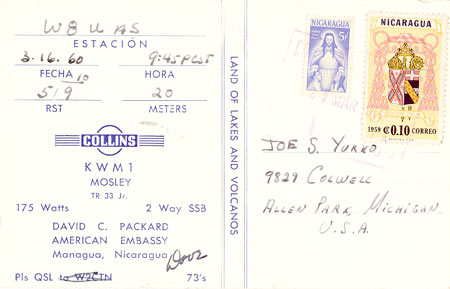 W8UAS
ESTACIÓN
3-16-60 9:45PCST
FECHA HORA
519 20
RST METERS
COLLINS
KWM1
MOSLEY
TR 33 Jr.
175 Watts 2 Way SSB
DAVID C. PACKARD
AMERICAN EMBASSY
Managua, Nicaragua
Dave
Pls QSL to W2CTN 73's
LAND OF LAKES AND VOLCANOS
NICARAGUA
5
NICARAGUA
1959 ₡0.10 CORREO
MAR
JOE S. YURKO
9829 COLWELL
ALLEN PARK, MICHIGAN.
U.S.A.